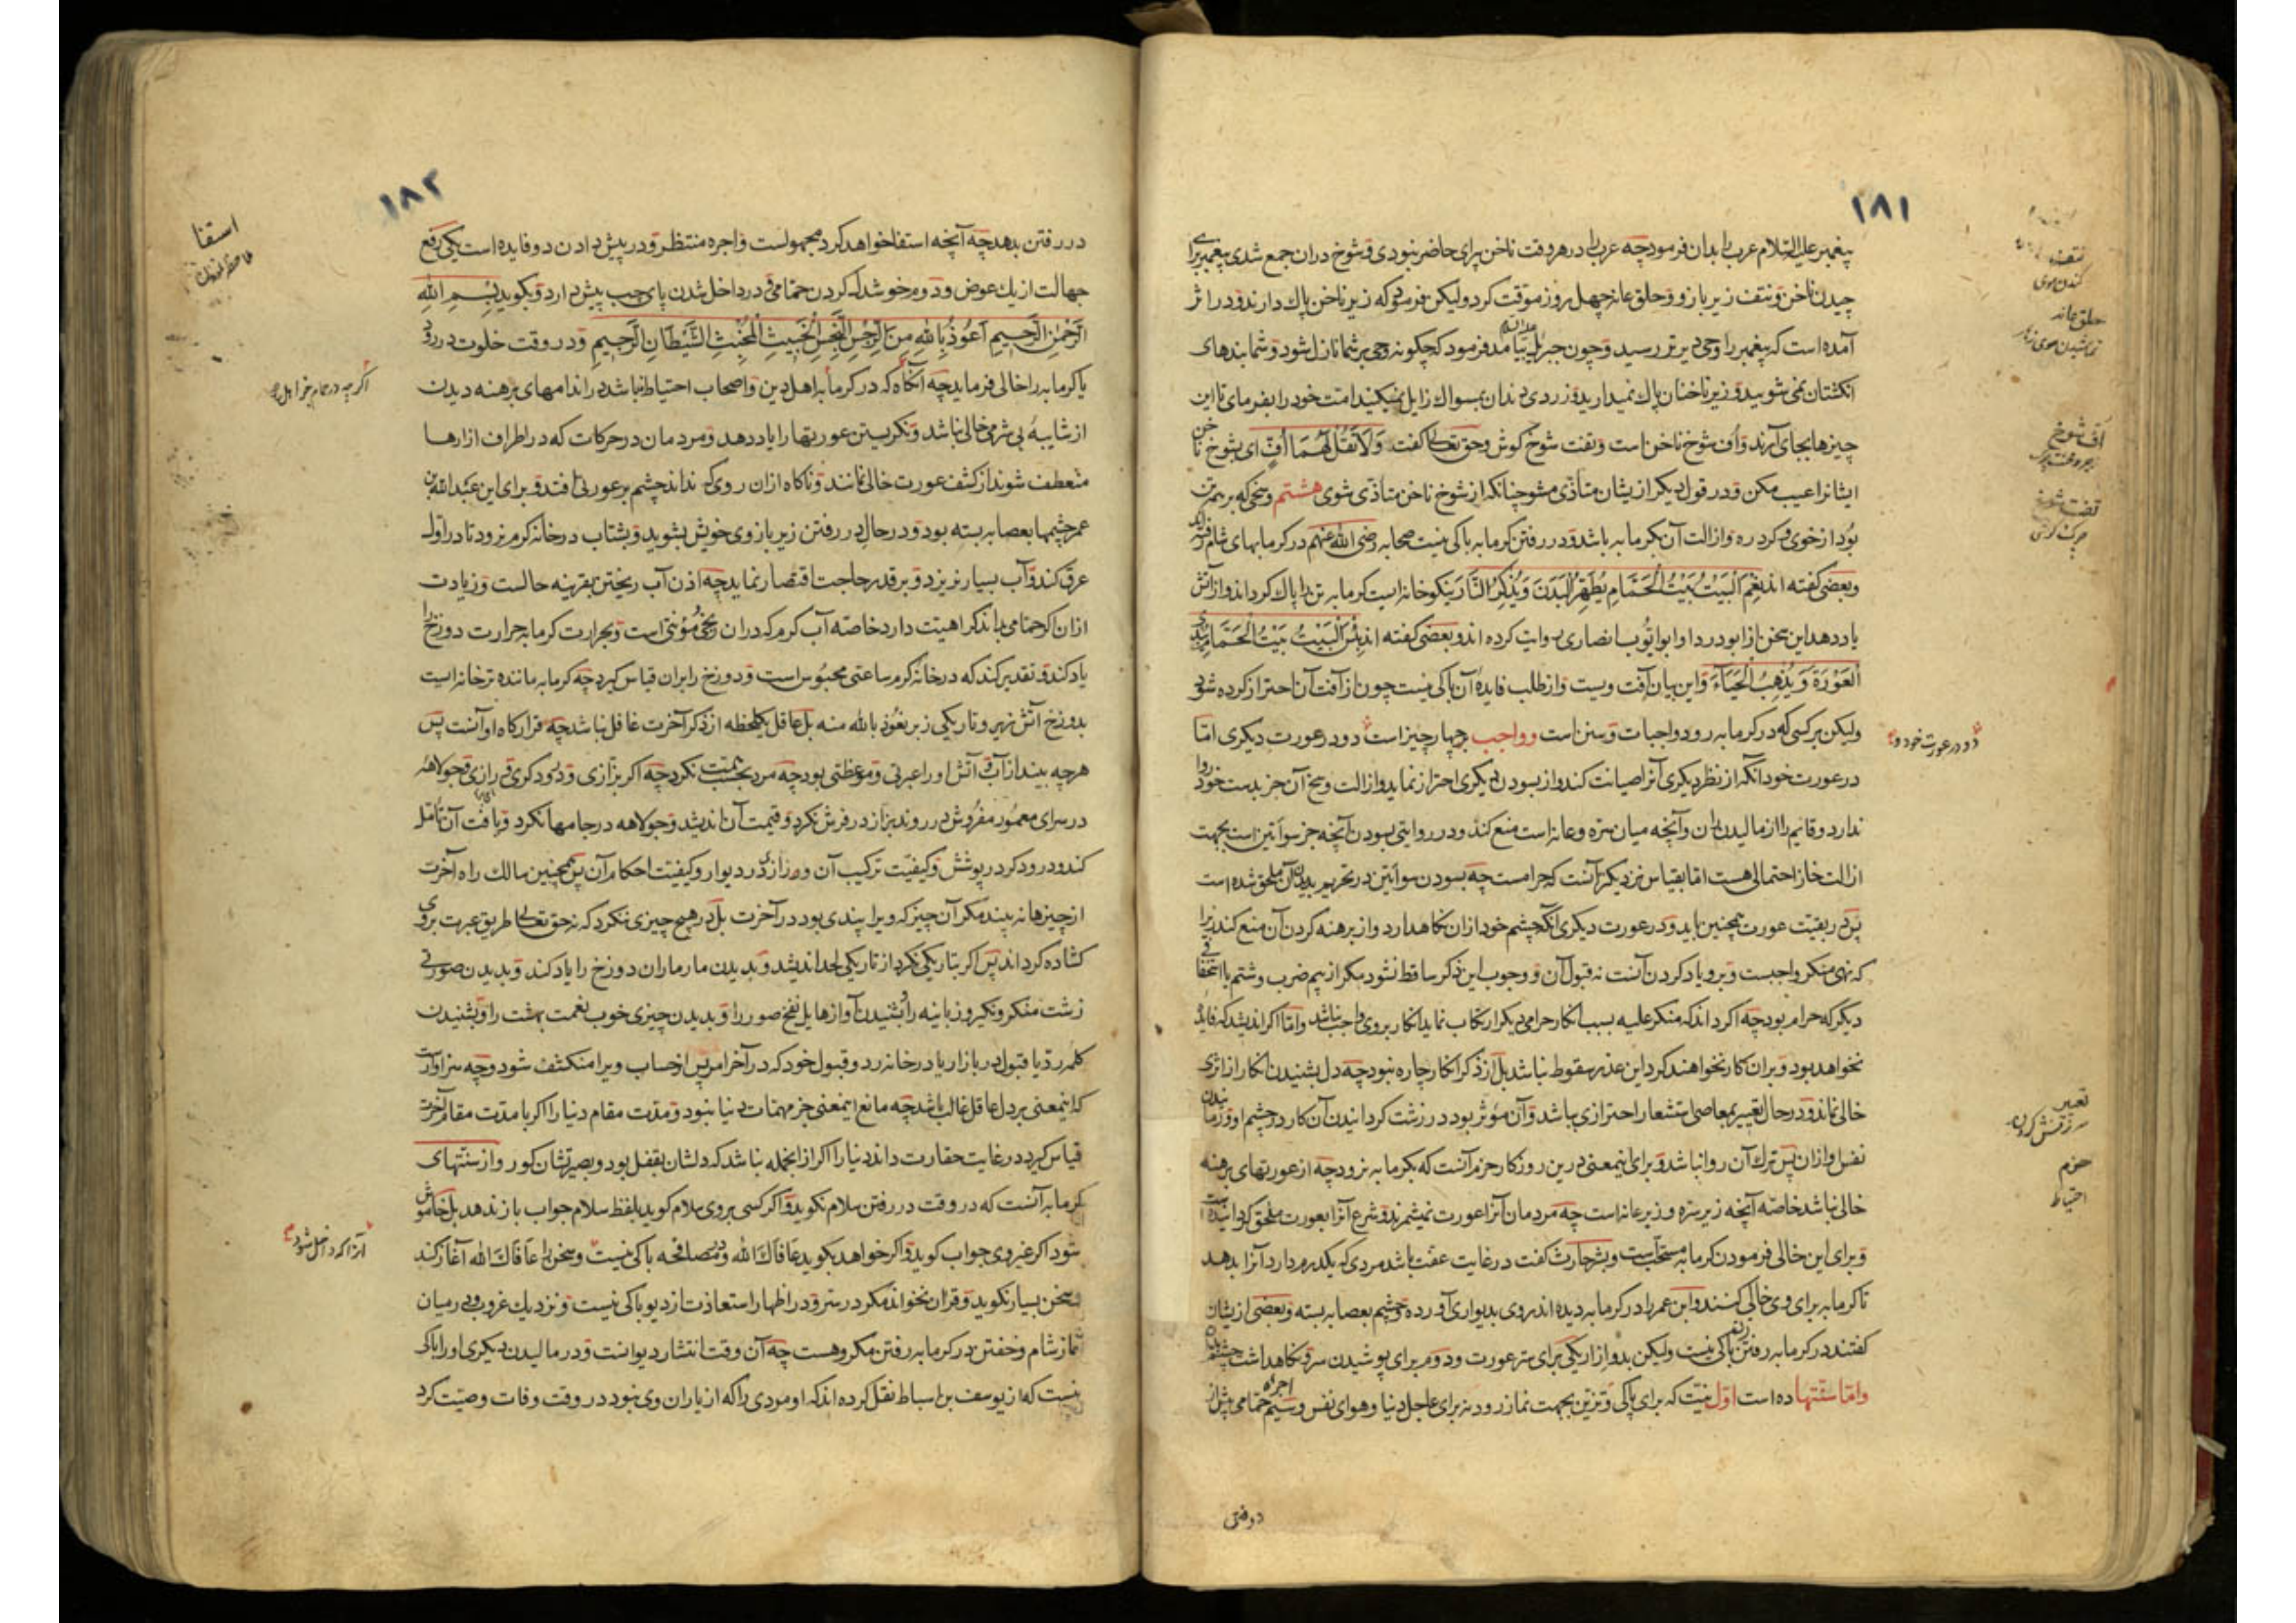 ١٨١
پیغمبر علیه السلام عرب را بدان فرمود چه عرب را در هر وقت ناخن پرای حاضر نبودی و شوخ دران جمع شدی پیغمبر برای
چیدن ناخن و نتف زیر بازو و حلق عانه چهل روز موقت کرد ولیکن فرمود که زیر ناخن پاک دارند و در اثر
آمده است که پیغمبر را وحی دیرتر رسید و چون جبرئیل علیه السلام بیامد فرمود که چگونه وحی بر شما نازل شود و شما بندهای
انگشتان نمی شویید و زیر ناخنان پاک نمیدارید و زردی دندان بمسواک زایل نمیکنید امت خود را بفرمای تا این
چیزها بجای آرند و اف شوخ ناخن است و تفت شوخ گوش و حق تعالی گفت وَلَا تَقُلْ لَهُمَا أُفٍّ ای بشوخ ناخن
ایشانرا عیب مکن و در قول دیگر از یشان متأذی مشو چنانکه از شوخ ناخن متأذی شوی هشتم وسخی که بر همه تن
بود از خوی و گرد ره و ازالت آن بگرمابه باشد و در رفتن گرمابه باکی نیست صحابه رضی الله عنهم در گرمابهای شام رفته اند
و بعضی گفته اند نِعْمَ الْبَيْتُ بَيْتُ الْحَمَّامِ يُطَهِّرُ الْبَدَنَ وَيُذَكِّرُ النَّارَ نیکو خانه ایست گرمابه تن را پاک گرداند و از آتش
یاد دهد این سخن از ابو دردا و ابو ایوب انصاری روایت کرده اند و بعضی گفته اند بِئْسَ الْبَيْتُ بَيْتُ الْحَمَّامِ يُبْدِي
الْعَوْرَةَ وَيُذْهِبُ الْحَيَاءَ و این بیان آفت ویست و از طلب فایدهٔ آن باکی نیست چون از آفت آن احتراز کرده شود
ولیکن بر کسی که در گرمابه رود واجبات و سنن است و واجب چهار چیز است دو در عورت دیگری اما
در عورت خود آنکه از نظر دیگری آنرا صیانت کند و از بسودن دیگری احتراز نماید و ازالت وسخ آن جز بدست خود روا
ندارد و قایم را از مالیدن ران و آنچه میان سره و عانه است منع کند و در روایتی بسودن آنچه جز سوأتین است بجهت
ازالت خاز احتمالی هست اما بقیاس نزدیکتر آنست که حرامست چه بسودن سوأتین در تحریم بدیدن آن ملحق شده است
پس در بقیت عورت همچنین باید و در عورت دیگری آنکه چشم خود ازان نگاهدارد و از برهنه کردن آن منع کند زیرا
که نهی منکر واجبست و برو یاد کردن آنست نه قبول آن و وجوب این ذکر ساقط نشود مگر از بیم ضرب و شتم یا استخفافی
دیگر که حرام بود چه اگر داند که منکر علیه بسبب انکار حرامی دیگر ارتکاب نماید انکار بر وی واجب نباشد و اما اگر اندیشد که فایده
نخواهد بود و بران کار نخواهند کرد این عذر سقوط نباشد بل از ذکر انکار چاره نبود چه دل بشنیدن انکار از اثری
خالی نماند و در حال تعییر بمعاصی استشعار احترازی باشد و آن مؤثر بود در زشت گردانیدن آن کار در چشم او و رمانیدن
نفس او ازان پس ترک آن روا نباشد و برای اینمعنی درین روزگار حزم آنست که بگرمابه نرود چه از عورتهای برهنه
خالی نباشد خاصه آنچه زیر سره و زبر عانه است چه مردمان آنرا عورت نمیشمرند و شرع آنرا بعورت ملحق گردانیده است
و برای این خالی فرمودن گرمابه مستحب است و بشر حارث گفت در غایت عفت باشد مردی که یکدرم دارد آنرا بدهد
تا گرمابه برای وی خالی کنند و ابن عمر را در گرمابه دیده اند روی بدیواری آورده و چشم بعصابه بسته و بعضی از یشان
گفتند در گرمابه رفتن باکی نیست ولیکن بدو ازار یکی برای ستر عورت و دوم برای پوشیدن سر و نگاهداشت چشم
و اما سنتها ده است اول نیت که برای پاکی و تزیین بجهت نماز رود نه برای عاجل دنیا و هوای نفس و سیم اجره حمامی پیش از
نتف
کندن موی
حلق عانه
تراشیدن موی زهار
اف شوخ
تفت شوخ
چرک گوش
دو در عورت خود و
تعییر
سرزنش کردن
حزم
احتیاط
در رفتن
١٨٢
در رفتن بدهد چه آنچه استفا خواهد کرد مجهولست و اجره منتظر و در پیش دادن دو فایده است یکی رفع
جهالت از یک عوض و دوم خوشدل کردن حمامی و در داخل شدن پای چپ پیش دارد و بگوید بِسْمِ اللهِ
الرَّحْمٰنِ الرَّحِيمِ أَعُوذُ بِاللهِ مِنَ الرِّجْسِ النَّجِسِ الْخَبِيثِ الْمُخْبِثِ الشَّيْطَانِ الرَّجِيمِ و در وقت خلوت در رود
یا گرمابه را خالی فرماید چه آنگاه که در گرمابه اهل دین و اصحاب احتیاط نباشد در اندامهای برهنه دیدن
از شایبهٔ بی شرمی خالی نباشد و نگریستن عورتها را یاد دهد و مردمان در حرکات که در اطراف ازارها
منعطف شوند از کشف عورت خالی نمانند و ناگاه ازان روی که نداند چشم بر عورتی افتد و برای این عبدالله بن
عمر چشمها بعصابه بسته بود و در حال در رفتن زیر بازوی خویش بشوید و بشتاب در خانهٔ گرم نرود تا در اول
عرق کند و آب بسیار نریزد و بر قدر حاجت اقتصار نماید چه اذن آب ریختن بقرینه حالست و زیادت
ازان اگر حمامی بداند کراهیت دارد خاصه آب گرم که دران رنجی و مؤنتی است و بحرارت گرمابه حرارت دوزخ را
یاد کند و تقدیر کند که در خانهٔ گرم ساعتی محبوس است و دوزخ را بران قیاس گیرد چه گرمابه ماننده تر خانه ایست
بدوزخ آتش زیر و تاریکی زبر نعوذ بالله منه بل عاقل یکلحظه از ذکر آخرت غافل نباشد چه قرارگاه او آنست پس
هرچه بیند از آب و آتش او را عبرتی و موعظتی بود چه مرد بحسب همت نگرد چه اگر بزازی و درودگری و رازی و جولاهه
در سرای معمور مفروش در روند بزاز در فرش نگرد و قیمت آن اندیشد و جولاهه در جامها نگرد و بافت آن تأمل
کند و درودگر در پوشش و کیفیت ترکیب آن و راز در دیوار و کیفیت احکام آن پس همچنین سالک راه آخرت
از چیزها نبیند مگر آن چیز که ویرا پندی بود در آخرت بل در هیچ چیزی ننگرد که نه حق تعالی طریق عبرت بروی
گشاده گرداند پس اگر بتاریکی نگرد از تاریکی لحد اندیشد و بدیدن مار ماران دوزخ را یاد کند و بدیدن صورتی
زشت منکر و نکیر و زبانیه را و بشنیدن آوازهایل نفخ صور را و بدیدن چیزی خوب نعمت بهشت را و بشنیدن
کلمهٔ رد یا قبول در بازار یا در خانه رد و قبول خود که در آخر امر پس از حساب ویرا منکشف شود و چه سزاوار است
که اینمعنی بر دل عاقل غالب باشد چه مانع اینمعنی جز مهمات دنیا نبود و مدت مقام دنیا را اگر با مدت مقام آخرت
قیاس گیرد در غایت حقارت داند دنیا را اگر ازانجمله نباشد که دلشان بقفل بود و بصیرتشان کور و از سنتهای
گرمابه آنست که در وقت در رفتن سلام نگوید و اگر کسی بروی سلام گوید بلفظ سلام جواب باز ندهد بل خاموش
شود اگر غیر وی جواب گوید و اگر خواهد بگوید عافاک الله و در مصافحه باکی نیست و سخن را عافاک الله آغاز کند
و سخن بسیار نگوید و قرآن نخواند مگر در سر و در اظهار استعاذت از دیو باکی نیست و نزدیک غروب و میان
نماز شام و خفتن در گرمابه رفتن مکروهست چه آن وقت انتشار دیوانست و در مالیدن دیگری او را باکی
نیست که از یوسف بن اسباط نقل کرده اند که او مردی را که از یاران وی نبود در وقت وفات وصیت کرد
استفا
اگر چه در حمام جز اهل
آنرا که داخل شود